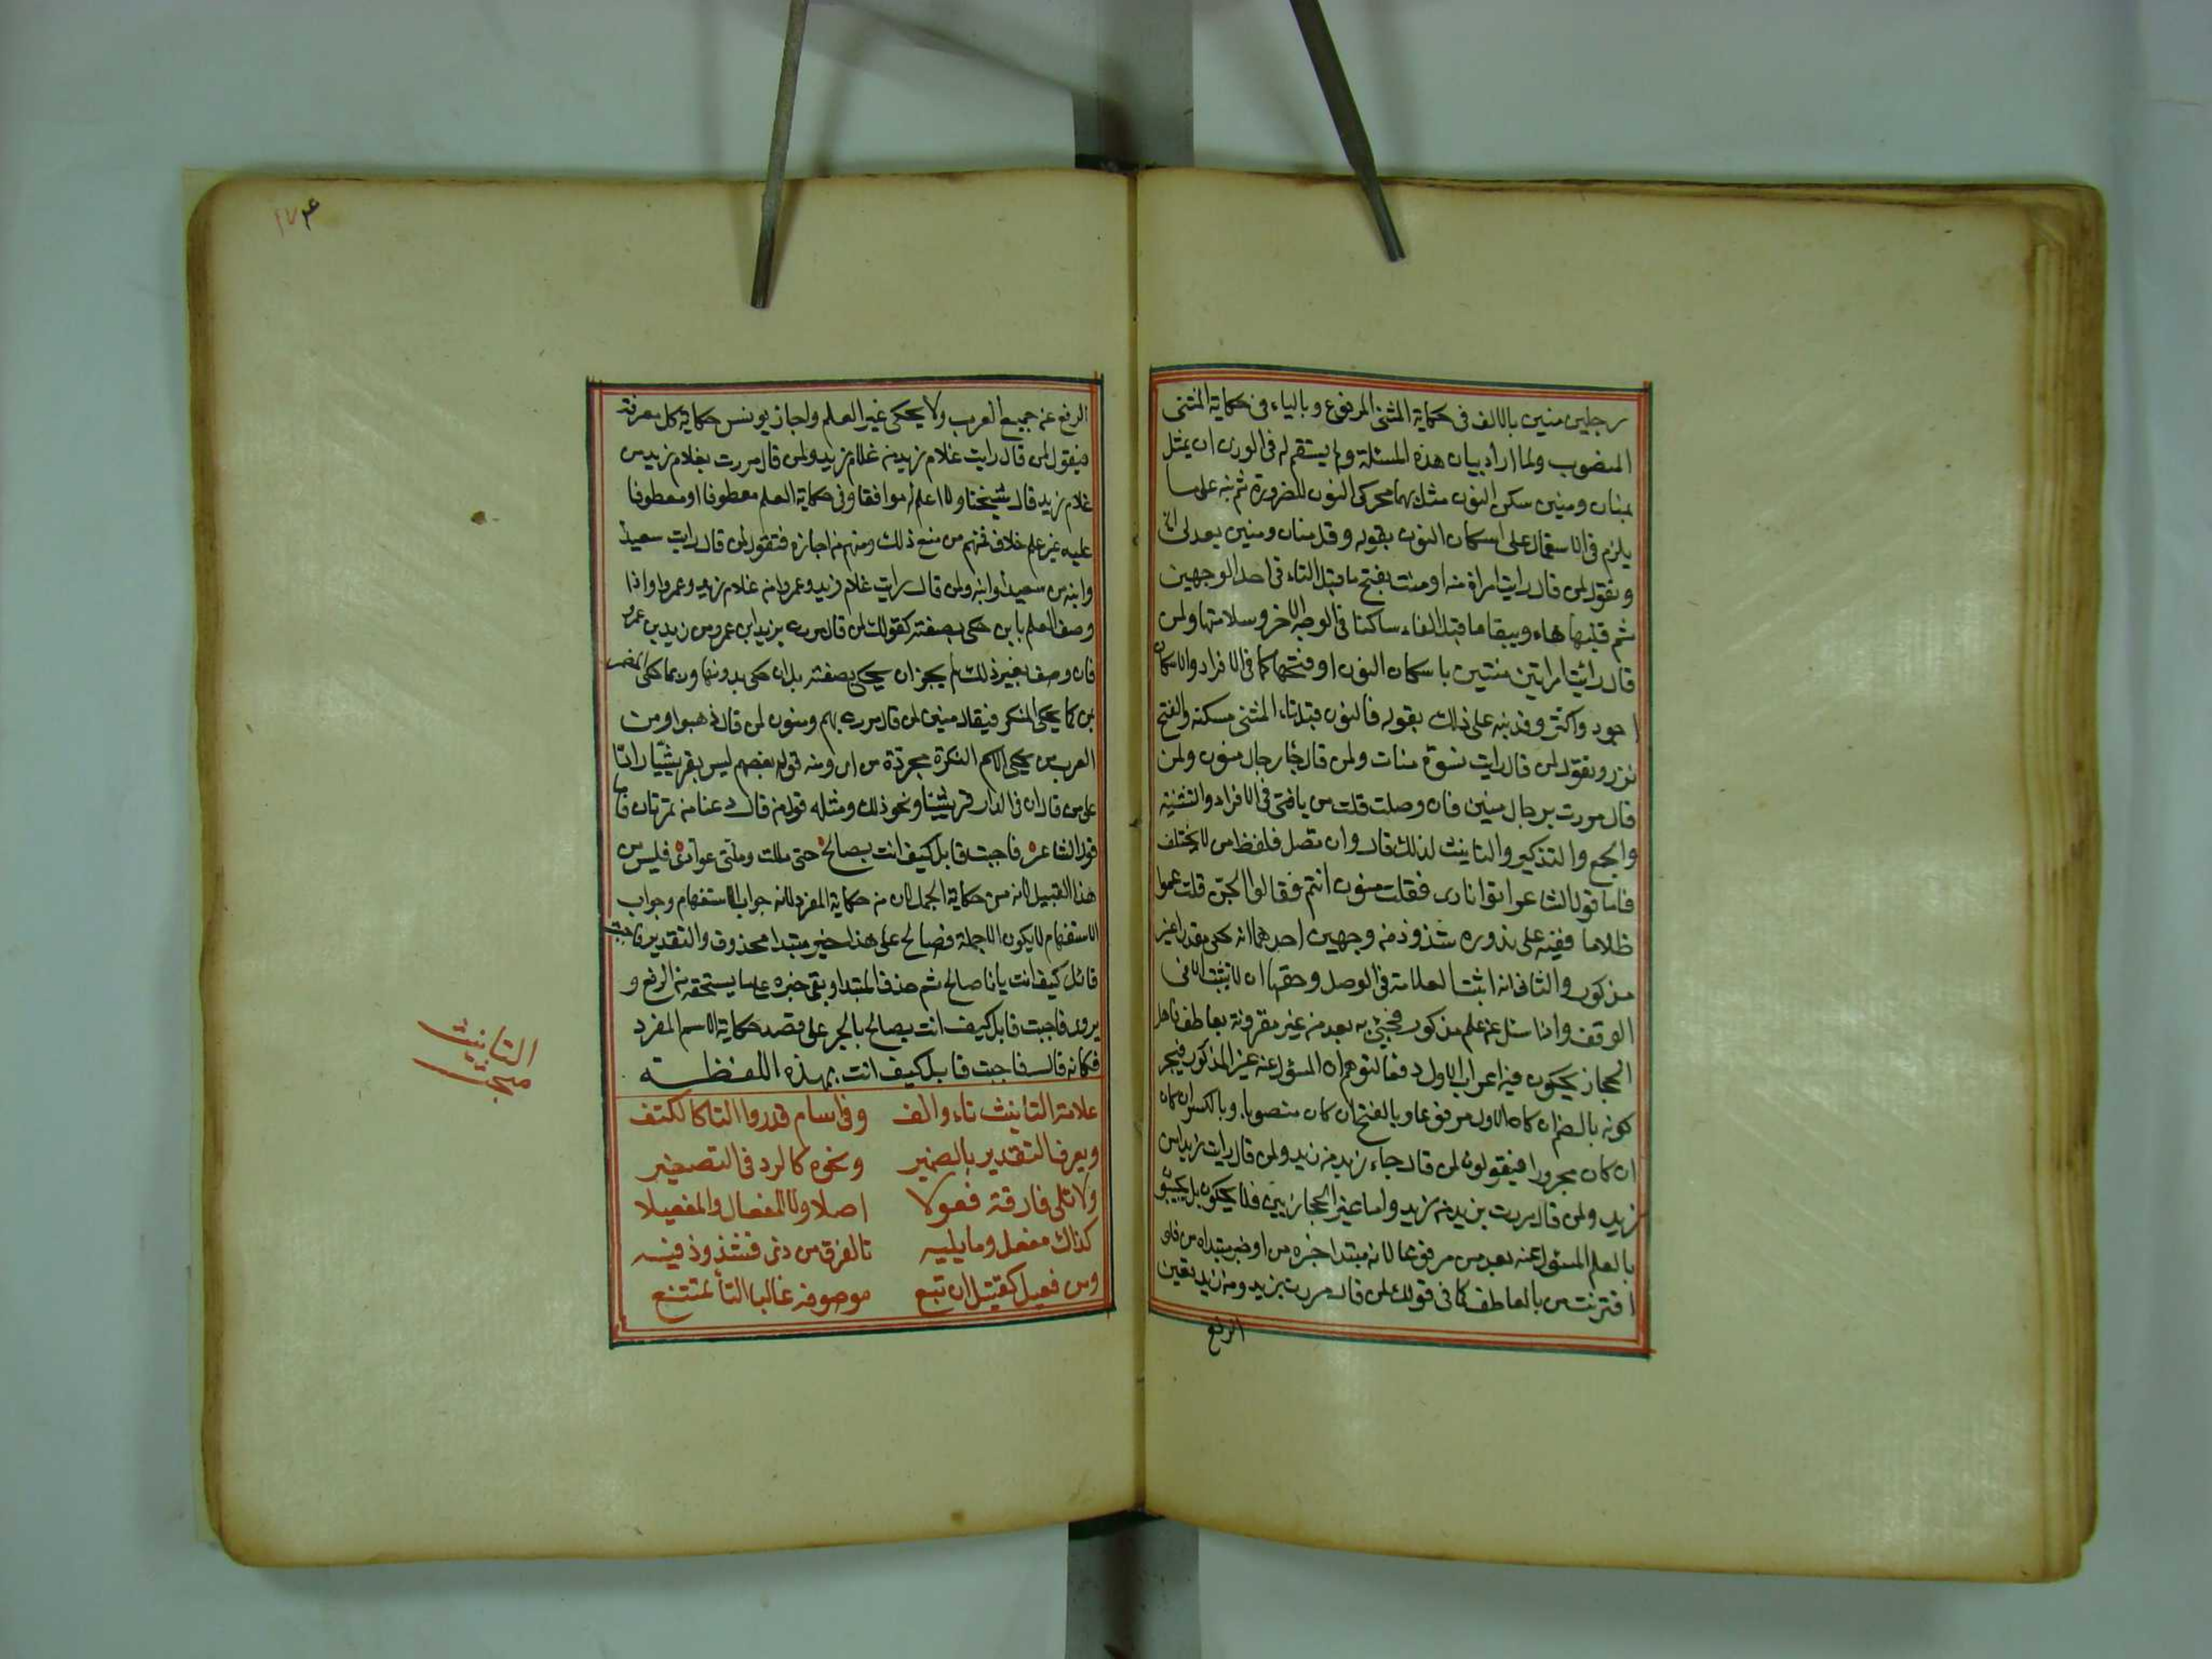 رجلين منين بالالف فى حكاية المثنى المرفوع وبالياء فى حكاية المثنى
المنصوب ولما اراد بيان هذه المسئلة ولم يستقم له فى الوزن ان يمثل
بمنان ومنين سكن النون مثل بهما محركى النون للضرورة ثم نبه على ما
يلزم فى الاستعمال على اسكان النون بقوله وقل منان ومنين بعد لى
وتقول لمن قال رايت امراة منه او منت بفتح ما قبل التاء فى احد الوجهين
ثم قلبها هاء ويبقا ما قبل الفاء ساكنا فى الوجه الاخر وسلامتها ولمن
قال رايت امراتين منتين باسكان النون او فتحها كما فى الافراد والاسكان
اجود واكثر وقد نبه على ذلك بقوله فالنون قبل تاء المثنى مسكنه والفتح
نزر وتقول لمن قال رايت نسوة منات ولمن قال جا رجال منون ولمن
قال مررت برجال منين فان وصلت قلت من يا فتى فى الافراد والتثنية
والجمع والتذكير والتانيث لذلك قال وان تصل فلفظ من لا يختلف
فاما قول الشاعر اتوا نارى فقلت منون انتم فقالوا الجن قلت عموا
ظلاما ففيه على ندوره شذوذ من وجهين احدهما انه حكى مقدرا غير
مذكور والثانى انه اثبت العلامة فى الوصل وحقها ان لا تثبت الا فى
الوقف واذا سئل عن علم مذكور فجئ به بعد من غير مقرونة بعاطف فاهل
الحجاز يحكون فيه اعراب الاول دفعا لتوهم ان المسؤل عنه غير المذكور فيجر
كونه بالضم ان كان الاول مرفوعا وبالفتح ان كان منصوبا وبالكسر ان كان
ان كان مجرورا فيقولون لمن قال جاء زيد من زيد ولمن قال رايت زيدا من
زيدا ولمن قال مررت بزيد من زيد واما غير الحجازيين فلا يحكون بل يجيئو
بالعلم المسؤل عنه بعد من مرفوعا لانه مبتدا خبره من او خبر مبتداه من فان
اقترنت من بالعاطف كما فى قولك لمن قال مررت بزيد ومن زيد تعين
الرفع
الرفع عند جميع العرب ولا يحكى غير العلم واجاز يونس حكاية كل معرفة
فيقول لمن قال رايت غلام زيد من غلام زيد ولمن قال مررت بغلام زيد من
غلام زيد قال شيخنا ولا اعلم له موافقا وفى حكاية العلم معطوفا او معطوفا
عليه غير علم خلاف فمنهم من منع ذلك ومنهم من اجازه فتقول لمن قال رايت سعيدا
وابنه من سعيدا وابنه ولمن قال رايت غلام زيد وعمرا من غلام زيد وعمرا واذا
وصف العلم بابن حكى بصفته كقولك لمن قال مررت بزيد ابن عمرو من زيد بن عمرو
فان وصف بغير ذلك لم يجز ان يحكى بصفته بل ان حكى بدونها وربما حكى المضمر
بمن كما يحكى المنكر فيقال منين لمن قال مررت بهم ومنون لمن قال ذهبوا ومن
العرب من يحكى الاسم النكرة مجردة من اى ومنه قول بعضهم ليس بقرشيا رادا
على من قال ان فى الدار قرشيا ونحو ذلك ومثله قول من قال دعنا من تمرتان فاما
قول الشاعر فاجبت قايل كيف انت بصالح حتى مللت وملنى عوادى فليس من
هذا القبيل لانه من حكاية الجمل لا من حكاية المفرد لانه جواب الاستفهام وجواب
الاستفهام لا يكون الا جملة فصالح على هذا خبر مبتدا محذوف والتقدير فاجبت
قائل كيف انت بانا صالح ثم حذف المبتدا وبقى خبره على ما يستحقه من الرفع و
يروى فاجبت قايل كيف انت بصالح بالجر على قصد حكاية الاسم المفرد
فكانه قال فاجبت قايل كيف انت بهذه اللفظة
علامة التانيث تاء والف وفى اسام قدروا التا كالكتف
ويعرف التقدير بالضمير ونحوه كالرد فى التصغير
ولا تلى فارقة فعولا اصلا ولا المفعال والمفعيلا
كذاك مفعل وما يليه تا الفرق من ذى فشذوذ فيه
ومن فعيل كقتيل ان تبع موصوفه غالبا التا تمتنع
التانيث
مبحث
١٧٤